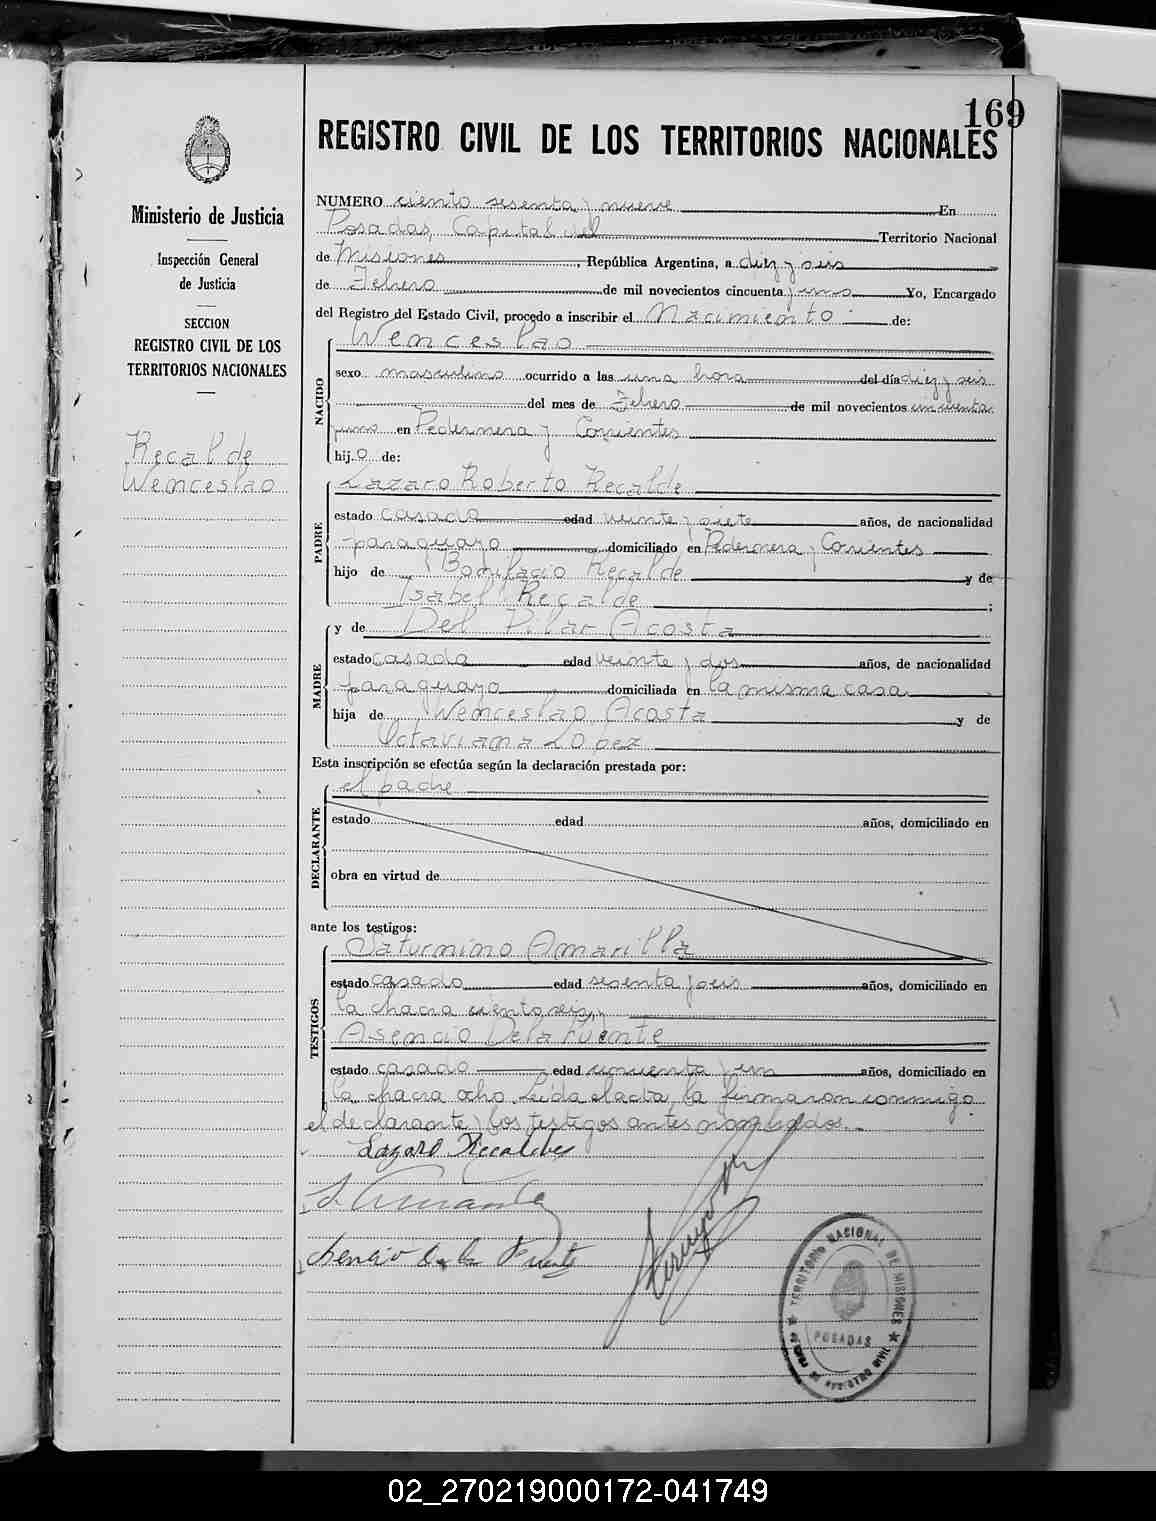 169
REGISTRO CIVIL DE LOS TERRITORIOS NACIONALES
Ministerio de Justicia
Inspección General
de Justicia
SECCION
REGISTRO CIVIL DE LOS
TERRITORIOS NACIONALES
Recalde
Wenceslao
NUMERO ciento sesenta y nueve En
Posadas, Capital del Territorio Nacional
de Misiones, República Argentina, a diez y seis
de Febrero de mil novecientos cincuenta y uno Yo, Encargado
del Registro del Estado Civil, procedo a inscribir el Nacimiento de:
NACIDO
Wenceslao
sexo masculino ocurrido a las una hora del día diez y seis
del mes de Febrero de mil novecientos cincuenta
y uno en Pedernera y Corrientes
hijo de:
PADRE
Lazaro Roberto Recalde
estado casado edad veinte y siete años, de nacionalidad
paraguayo domiciliado en Pedernera y Corrientes
hijo de Bonifacio Recalde y de
Isabel Recalde ;
MADRE
y de Del Pilar Acosta
estado casada edad veinte y dos años, de nacionalidad
paraguaya domiciliada en la misma casa
hija de Wenceslao Acosta y de
Octaviana Lopez
Esta inscripción se efectúa según la declaración prestada por:
DECLARANTE
el padre
estado edad años, domiciliado en
obra en virtud de
ante los testigos:
TESTIGOS
Saturnino Amarilla
estado casado edad sesenta y seis años, domiciliado en
la chacra ciento seis y
Asencio De la Fuente
estado casado edad cincuenta y un años, domiciliado en
la chacra ocho. Leída el acta, la firmaron conmigo
el declarante y los testigos antes nombrados.
Lazaro Recalde
Asencio de la Fuente
TERRITORIO NACIONAL DE MISIONES
POSADAS
REGISTRO CIVIL
02_270219000172-041749